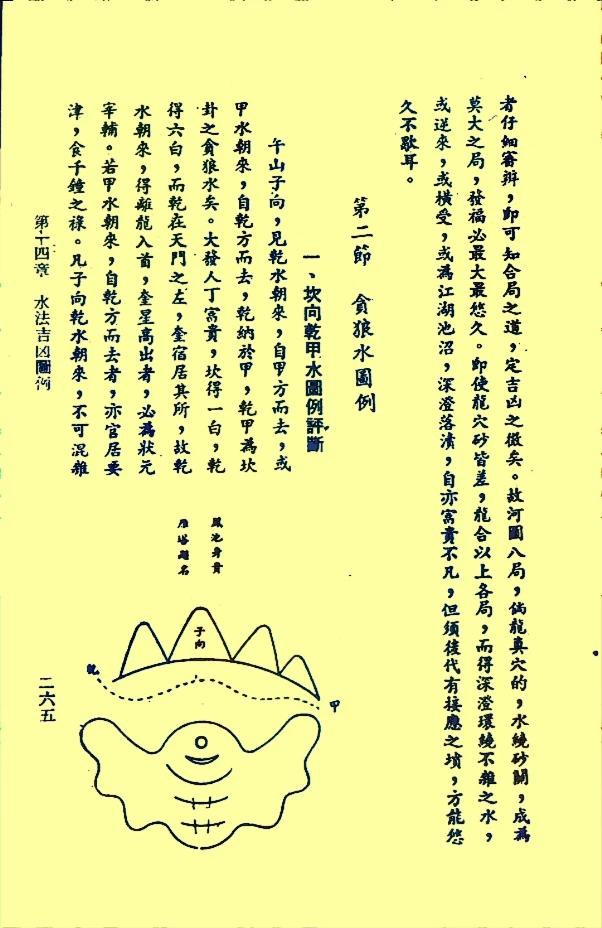 者仔細審辨，即可知合局之道，定吉凶之徵矣。故河圖八局，倘龍真穴的，水繞砂關，成為
莫大之局，發福必最大最悠久。即使龍穴砂皆差，龍合以上各局，而得深澄環繞不雜之水，
或逆來，或橫受，或為江湖池沼，深澄落瀆，自亦富貴不凡，但須後代有接應之墳，方能悠
久不歇耳。
第二節　貪狼水圖例
一、坎向乾甲水圖例評斷
午山子向，見乾水朝來，自甲方而去，或
甲水朝來，自乾方而去，乾納於甲，乾甲為坎
卦之貪狼水矣。大發人丁富貴，坎得一白，乾
得六白，而乾在天門之左，奎宿居其所，故乾
水朝來，得離龍入首，奎星高出者，必為狀元
宰輔。若甲水朝來，自乾方而去者，亦官居要
津，食千鐘之祿。凡子向乾水朝來，不可混雜
鳳池身貴
雁塔題名
子向
乾
甲
第十四章　水法吉凶圖例
二六五